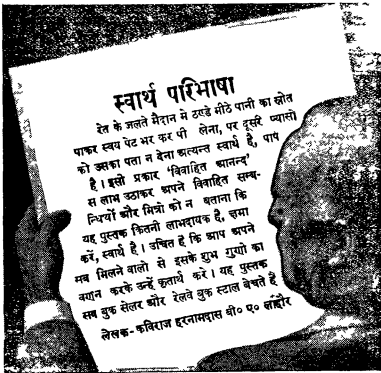 स्वार्थ परिभाषा
रेत के जलते मैदान मे ठण्डे मीठे पानी का स्रोत
पाकर स्वय पेट भर कर पी लेना, पर दूसरे प्यासो
को उसका पता न देना अत्यन्त स्वार्थ है, पाप
है। इसी प्रकार 'विवाहित आनन्द'
स लाभ उठाकर अपने विवाहित सम्ब-
न्धियों और मित्रो को न बताना कि
यह पुस्तक कितनी लाभदायक है, क्षमा
करें, स्वार्थ है। उचित है कि आप अपने
सब मिलने वालो से इसके शुभ गुणो का
वर्णन करके उन्हें कृतार्थ करे। यह पुस्तक
सब बुक सेलर और रेलवे बुक स्टाल बेचते हैं
लेखक-कविराज हरनामदास बी० ए० लाहौर